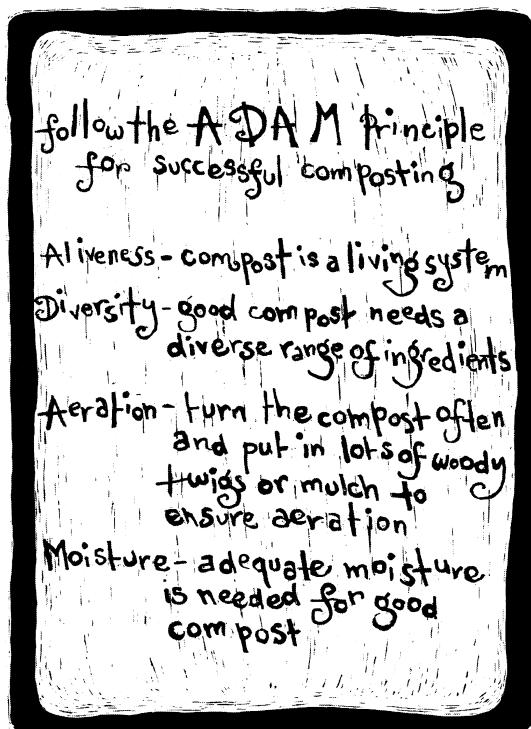 follow the ADAM principle
for successful composting
Aliveness - compost is a living system
Diversity - good compost needs a
diverse range of ingredients
Aeration - turn the compost often
and put in lots of woody
twigs or mulch to
ensure aeration
Moisture - adequate moisture
is needed for good
compost